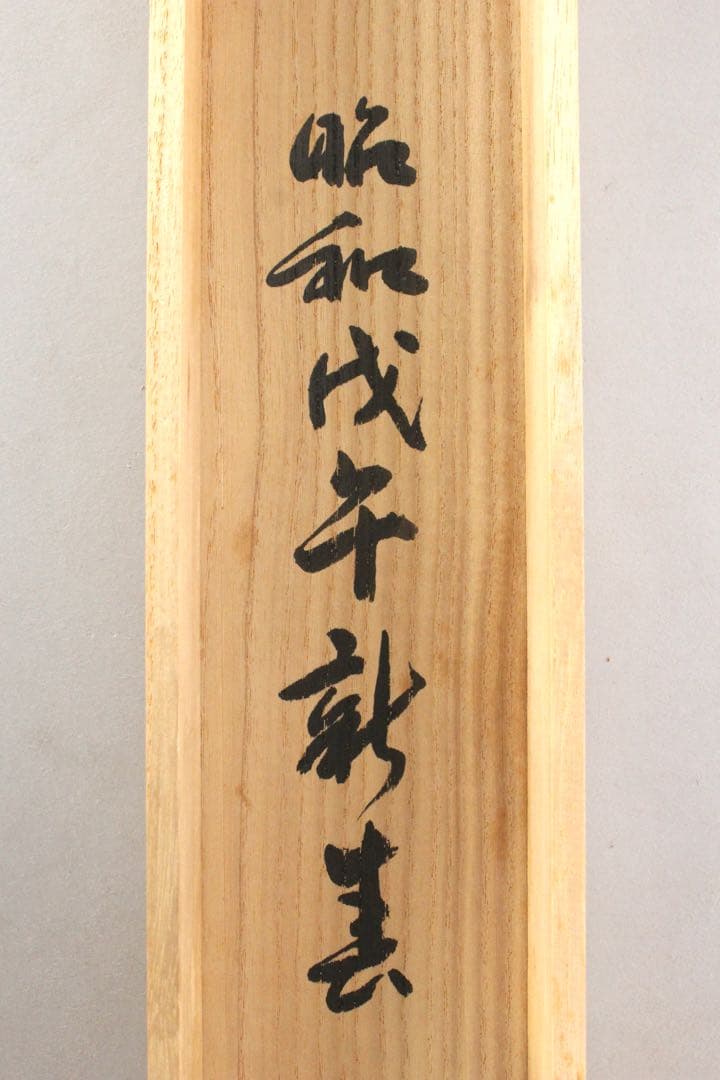 昭和戊午新春